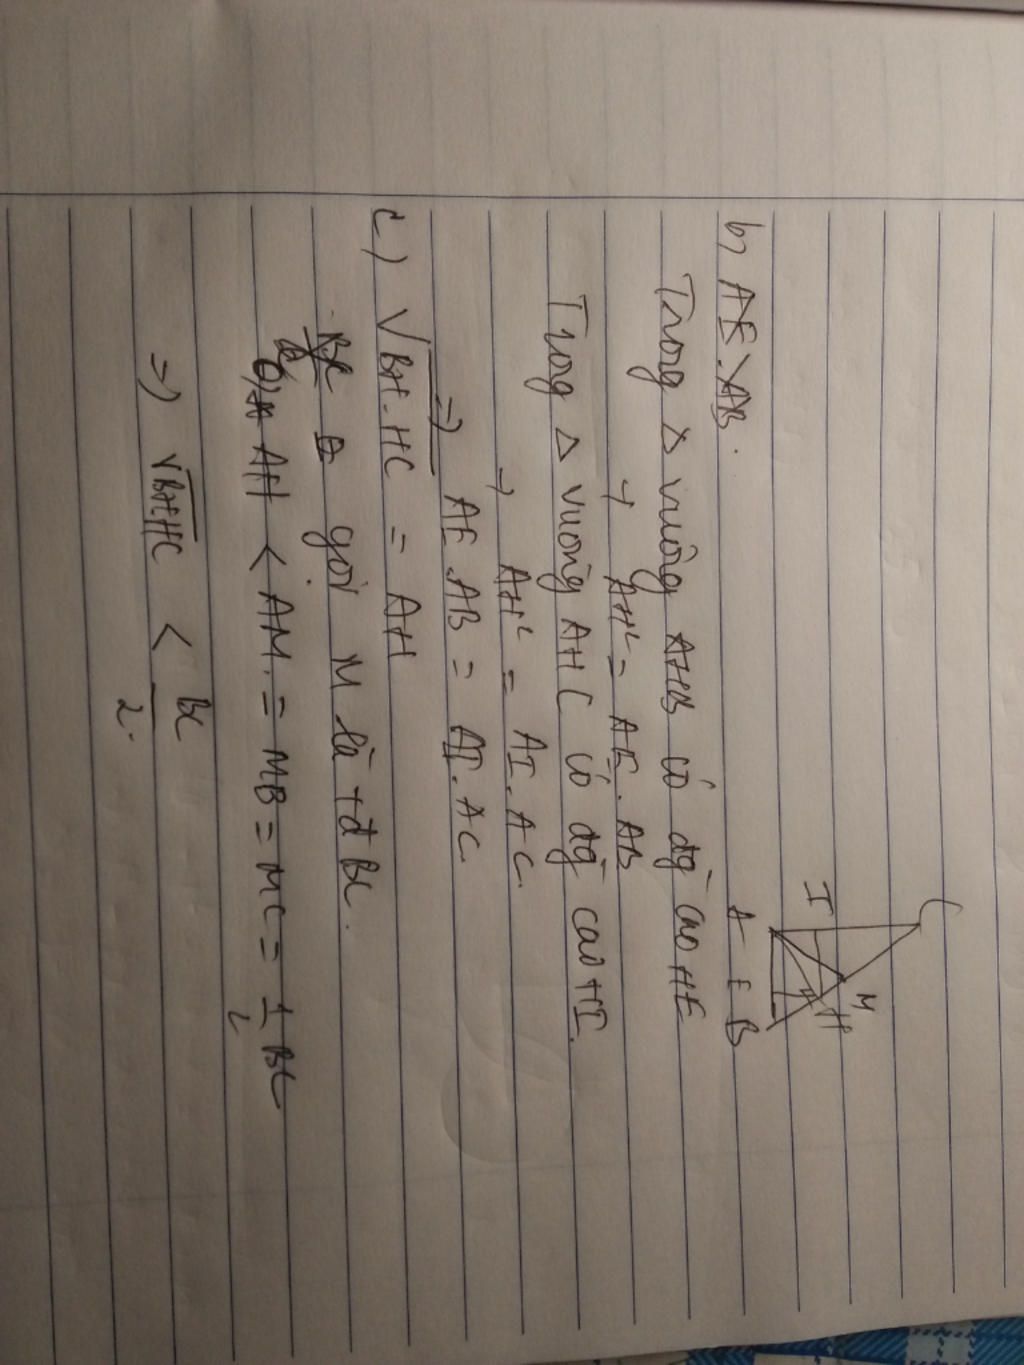 C
M
I
H
A E B
b) AE.AB.
Trong Δ vuông AHB có đg cao HE
→ AH² = AE.AB
Trong Δ vuông AHC có đg cao HI.
→ AH² = AI.AC
=> AE.AB = AI.AC.
c) √BH.HC = AH
gọi M là tđ BC.
AH < AM = MB = MC = 1/2 BC
=> √BH.HC < BC/2.